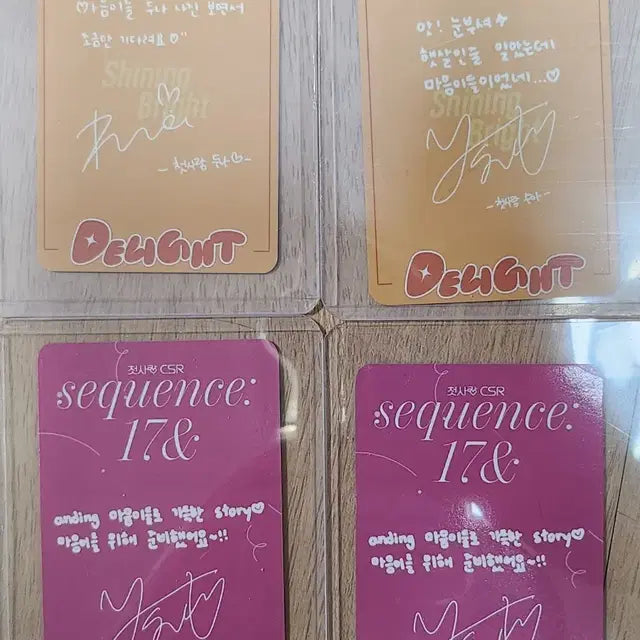 ♡마음이들 두나 사진 보면서
조금만 기다려요♡"
Shining
Bright
- 첫사랑 두나♡-
DELIGHT
앗! 눈부셔
햇살인들 알았는데
마음이들이었네...♡
Shining
Bright
-첫사랑 수아-
DELIGHT
첫사랑 CSR
:sequence:
17&
anding 마음이들로 가득한 story♡
마음이를 위해 준비했어요~!!
첫사랑 CSR
:sequence:
17&
anding 마음이들로 가득한 story♡
마음이를 위해 준비했어요~!!